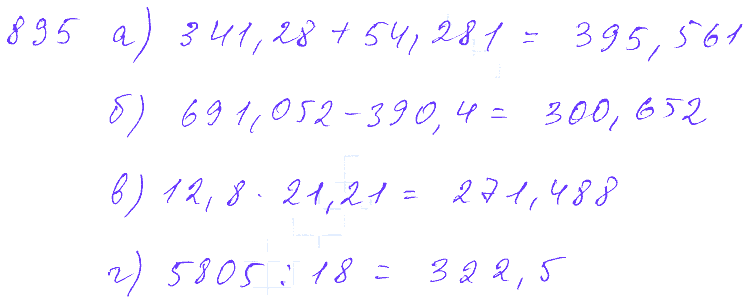 895 а) 341,28 + 54,281 = 395,561
б) 691,052 - 390,4 = 300,652
в) 12,8 · 21,21 = 271,488
г) 5805 : 18 = 322,5